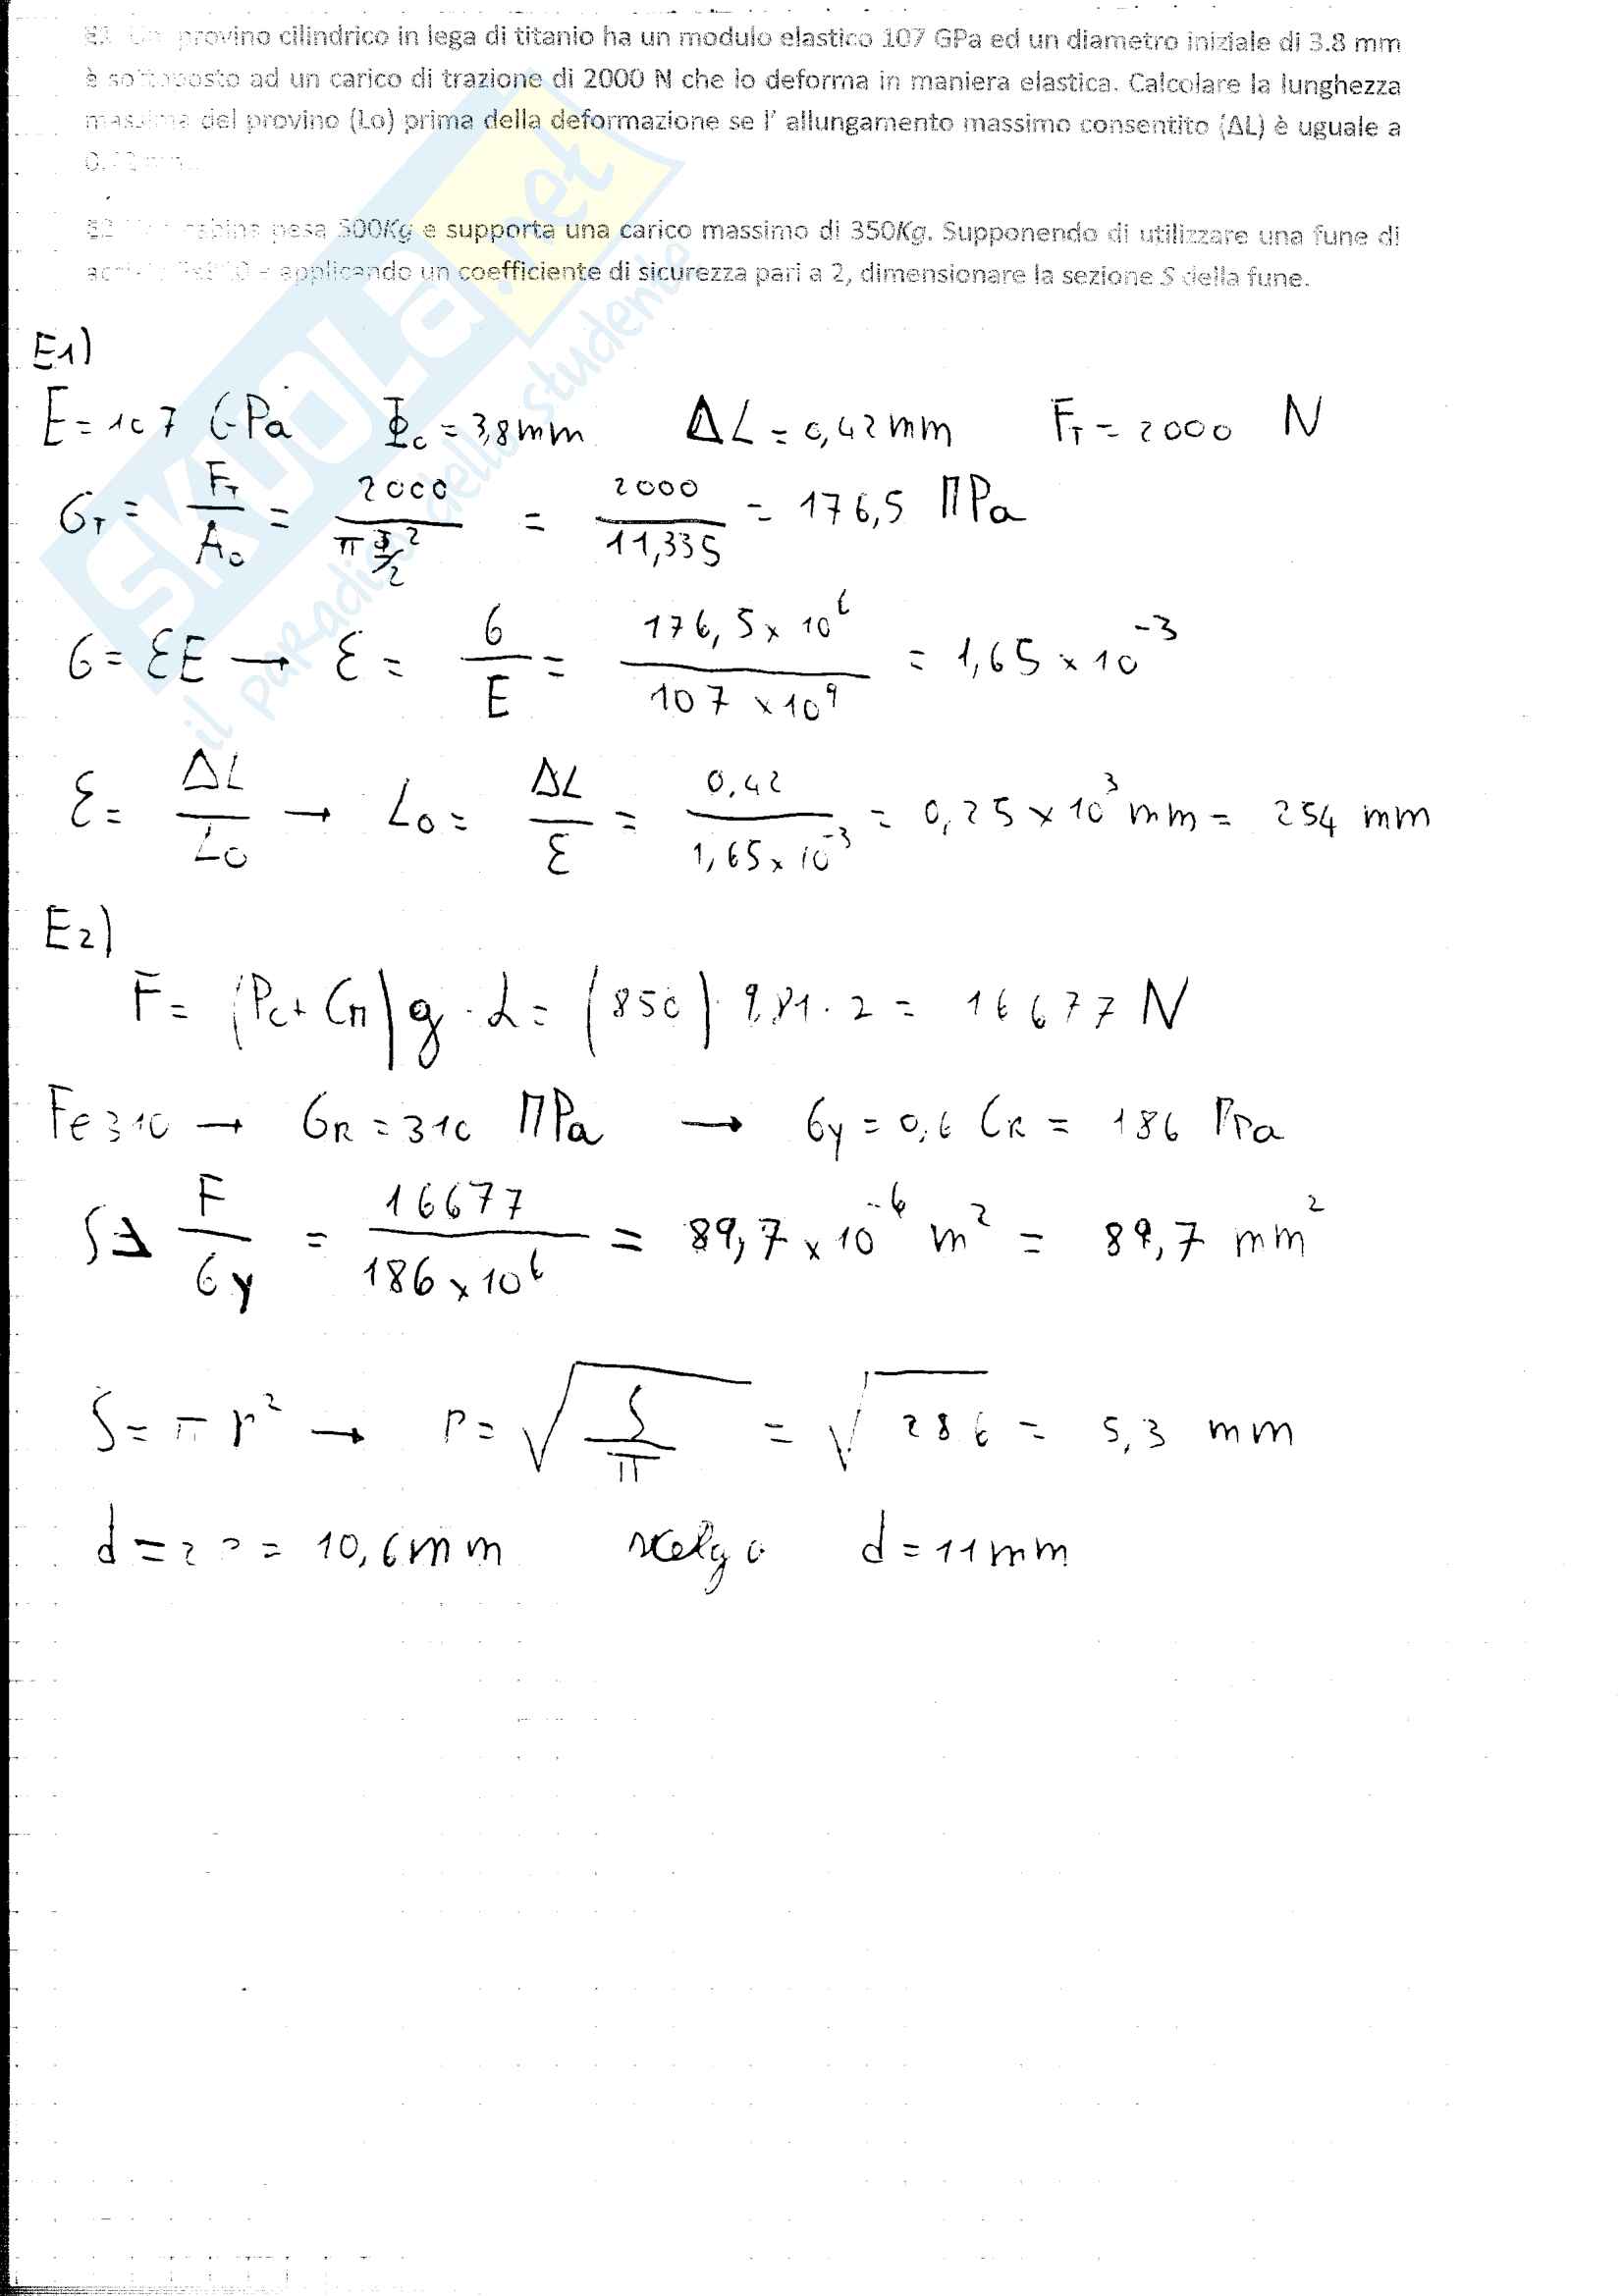 provino cilindrico in lega di titanio ha un modulo elastico 107 GPa ed un diametro iniziale di 3.8 mm
è sottoposto ad un carico di trazione di 2000 N che lo deforma in maniera elastica. Calcolare la lunghezza
massima del provino (Lo) prima della deformazione se l' allungamento massimo consentito (ΔL) è uguale a
cabina pesa 500Kg e supporta una carico massimo di 350Kg. Supponendo di utilizzare una fune di
applicando un coefficiente di sicurezza pari a 2, dimensionare la sezione S della fune.
SKUOLA.net
il paradiso dello studente
E1)
E = 107 GPa Φo = 3,8 mm ΔL = 0,42 mm FT = 2000 N
σT = FT / Ao = 2000 / π Φ/2 ² = 2000 / 11,335 = 176,5 MPa
σ = εE → ε = σ / E = 176,5 x 10⁶ / 107 x 10⁹ = 1,65 x 10⁻³
ε = ΔL / Lo → Lo = ΔL / ε = 0,42 / 1,65 x 10⁻³ = 0,25 x 10³ mm = 254 mm
E2)
F = (Pc + CM) g · 2 = (850) · 9,81 · 2 = 16677 N
Fe 310 → σR = 310 MPa → σy = 0,6 σR = 186 MPa
S = F / σy = 16677 / 186 x 10⁶ = 89,7 x 10⁻⁶ m² = 89,7 mm²
S = π r² → r = √ S / π = √ 28 6 = 5,3 mm
d = 2 r = 10,6 mm scelgo d = 11 mm